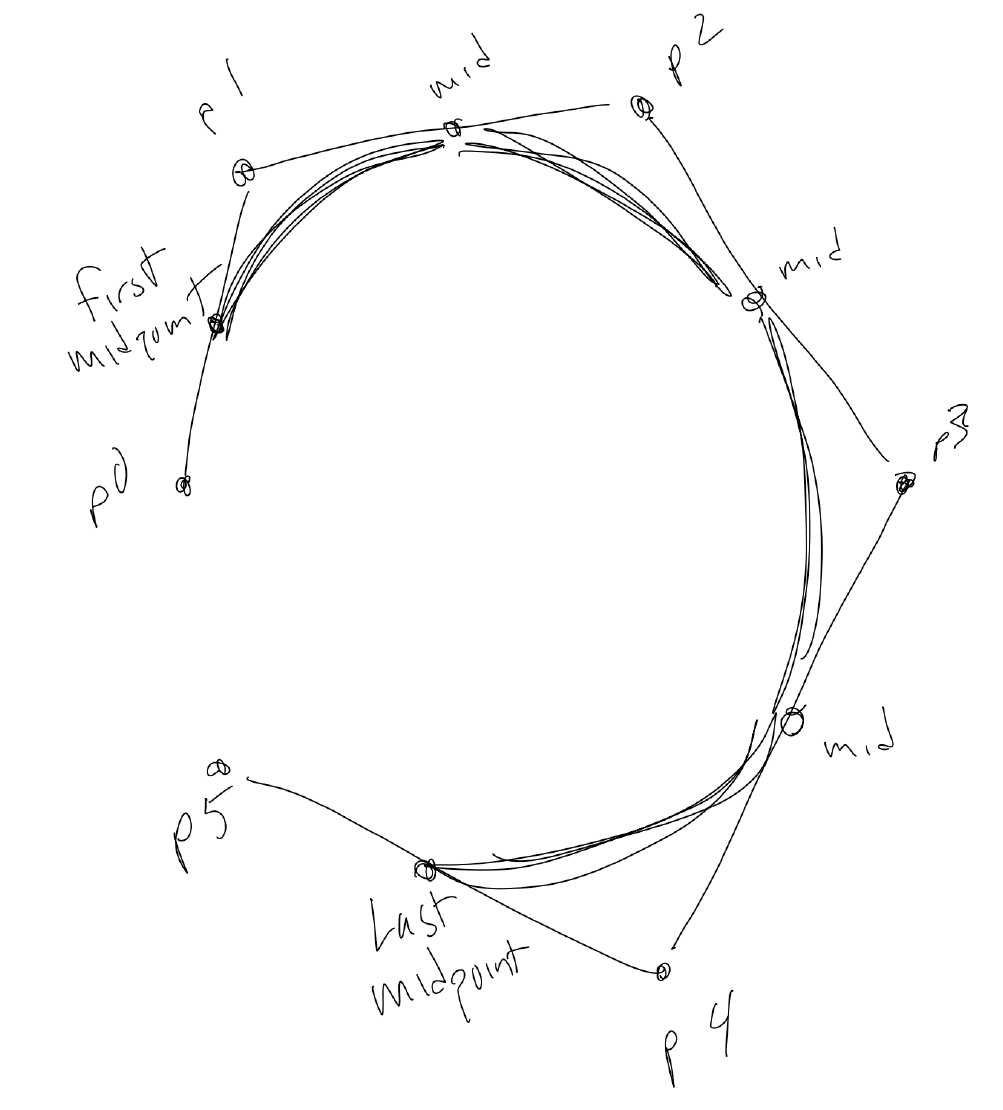 p1
mid
p2
first
midpoint
mid
p0
p3
mid
p5
Last
midpoint
p4